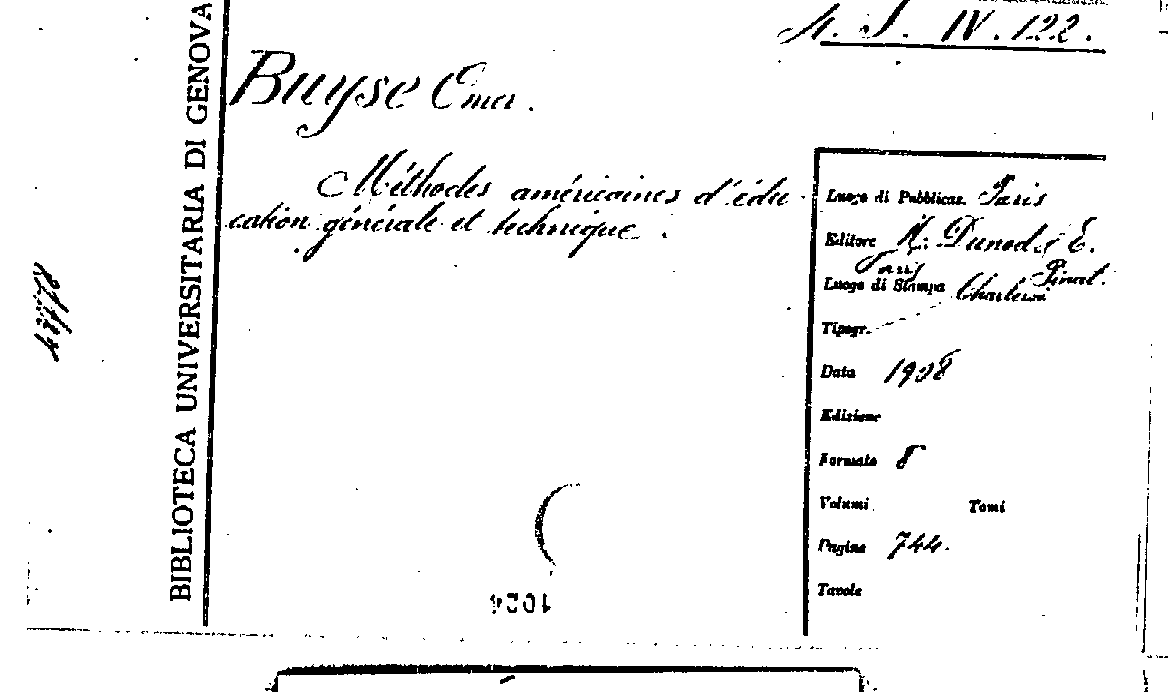 4. J. IV. 122.
BIBLIOTECA UNIVERSITARIA DI GENOVA
Buyse Omer.
Méthodes américaines d'édu-
cation générale et technique.
Luogo di Pubblicaz. Paris
Editore H. Dunod & E.
Pinat.
Luogo di Stampa Charleroi
Tipogr.
Data 1908
Edizione
Formato 8
Volumi Tomi
Pagine 744.
Tavole